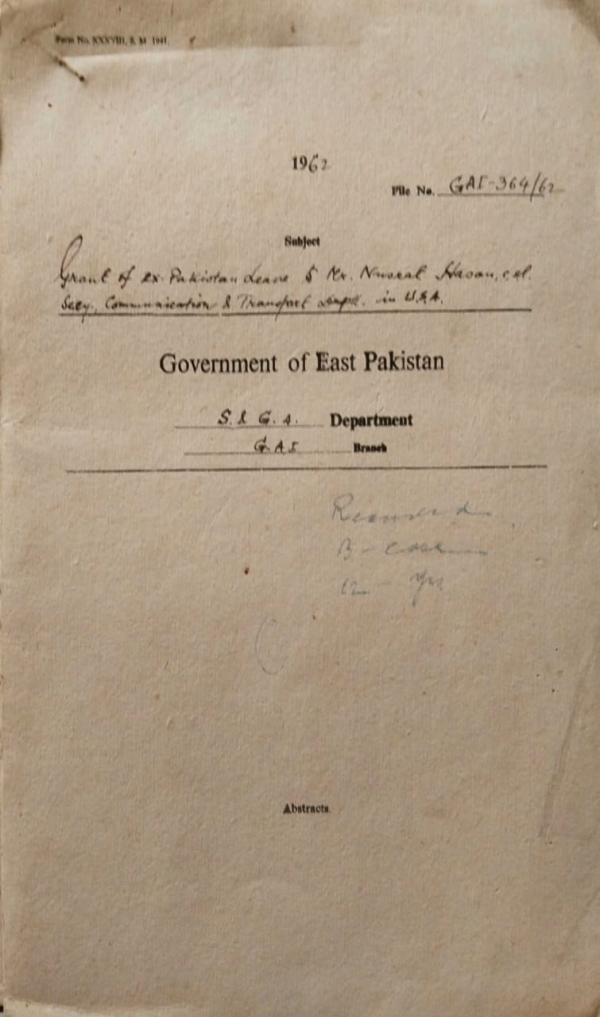 Form No. XXXVIII, S. M. 1941.
1962
File No. GAI-364/62
Subject
Grant of ex. Pakistan Leave to Mr. Nusrat Hasan,
Secy. Communication & Transport Deptt. in U.S.A.
Government of East Pakistan
S. & G. A. Department
GAI Branch
B -
12 - Yrs
Abstracts.